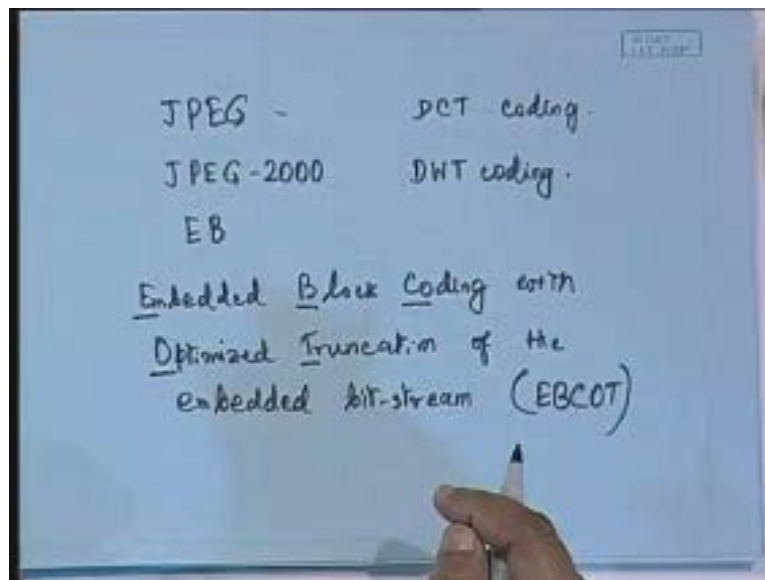 JPEG - DCT coding.
JPEG-2000 DWT coding.
EB
Embedded Block Coding with
Optimized Truncation of the
embedded bit-stream (EBCOT)